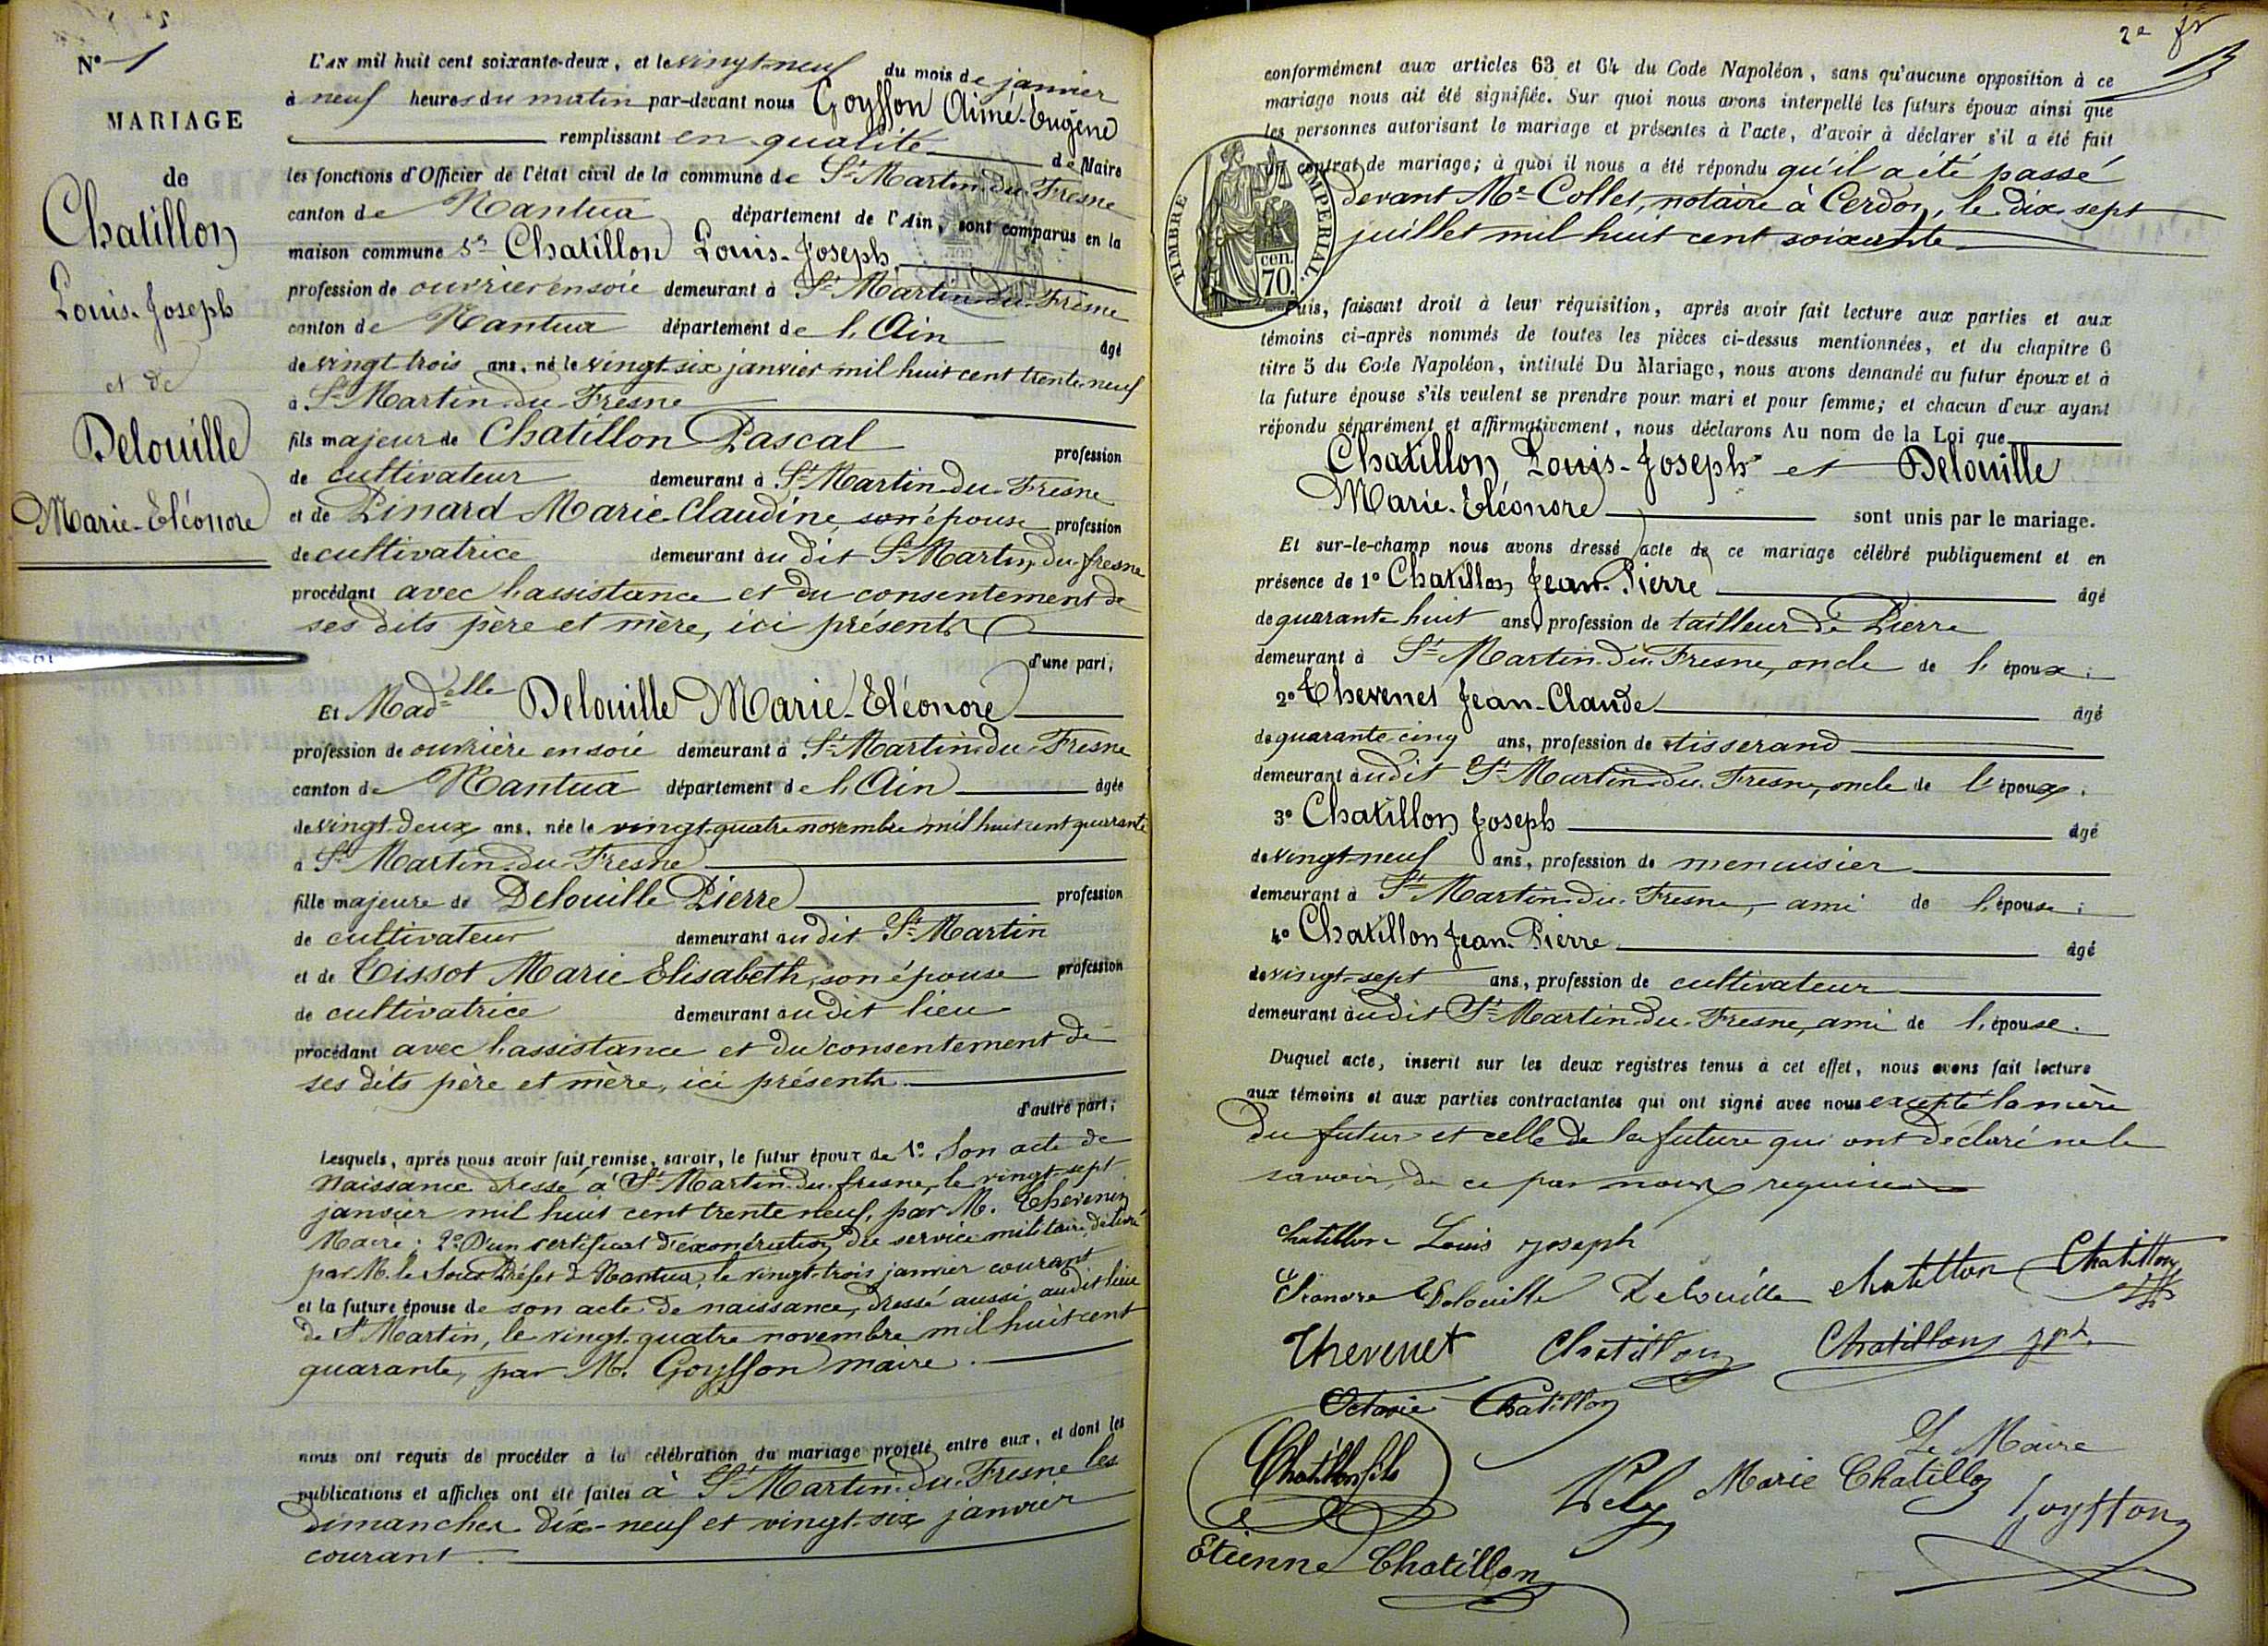 N° 1
MARIAGE
de
Chatillon
Louis-Joseph
et de
Delouille
Marie-Eléonore
L'AN mil huit cent soixante-deux, et le vingt-neuf du mois de janvier
à neuf heures du matin par-devant nous Goyffon Aimé-Eugène
remplissant en qualité de Maire
les fonctions d'Officier de l'état civil de la commune de St Martin-du-Fresne
canton de Nantua département de l'Ain, sont comparus en la
maison commune Sr Chatillon Louis-Joseph
profession de ouvrier en soie demeurant à St Martin-du-Fresne
canton de Nantua département de l'Ain âgé
de vingt-trois ans, né le vingt-six janvier mil huit cent trente-neuf
à St Martin-du-Fresne
fils majeur de Chatillon Pascal profession
de cultivateur demeurant à St Martin-du-Fresne
et de Pinard Marie-Claudine, son épouse profession
de cultivatrice demeurant au dit St Martin-du-fresne
procédant avec l'assistance et du consentement de
ses dits père et mère, ici présents
d'une part;
Et Madelle Delouille Marie-Eléonore
profession de ouvrière en soie demeurant à St Martin-du-Fresne
canton de Nantua département de l'Ain âgée
de vingt-deux ans, née le vingt-quatre novembre mil huit cent quarante
à St Martin-du-Fresne
fille majeure de Delouille Pierre profession
de cultivateur demeurant au dit St Martin
et de Tissot Marie-Elisabeth, son épouse profession
de cultivatrice demeurant audit lieu
procédant avec l'assistance et du consentement de
ses dits père et mère, ici présents.
d'autre part;
Lesquels, après nous avoir fait remise, savoir, le futur époux de 1° Son acte de
naissance dressé à St Martin-du-fresne, le vingt-sept
janvier mil huit cent trente neuf, par M. Thevenin
Maire; 2° D'un certificat d'exonération du service militaire délivré
par M. le Sous Préfet de Nantua, le vingt-trois janvier courant
et la future épouse de son acte de naissance, dressé aussi audit lieu
de St Martin, le vingt-quatre novembre mil huit cent
quarante, par M. Goyffon maire.
nous ont requis de procéder à la célébration du mariage projeté entre eux, et dont les
publications et affiches ont été faites à St Martin-du-Fresne les
dimanches dix-neuf et vingt-six janvier
courant.
2e
conformément aux articles 63 et 64 du Code Napoléon, sans qu'aucune opposition à ce
mariage nous ait été signifiée. Sur quoi nous avons interpellé les futurs époux ainsi que
les personnes autorisant le mariage et présentes à l'acte, d'avoir à déclarer s'il a été fait
un contrat de mariage; à quoi il nous a été répondu qu'il a été passé
devant Me Collet, notaire à Cerdon, le dix sept
juillet mil huit cent soixante
TIMBRE IMPERIAL.
cen.
70.
Puis, faisant droit à leur réquisition, après avoir fait lecture aux parties et aux
témoins ci-après nommés de toutes les pièces ci-dessus mentionnées, et du chapitre 6
titre 5 du Code Napoléon, intitulé Du Mariage, nous avons demandé au futur époux et à
la future épouse s'ils veulent se prendre pour mari et pour femme; et chacun d'eux ayant
répondu séparément et affirmativement, nous déclarons Au nom de la Loi que
Chatillon Louis-Joseph et Delouille
Marie-Eléonore sont unis par le mariage.
Et sur-le-champ nous avons dressé acte de ce mariage célébré publiquement et en
présence de 1° Chatillon Jean-Pierre âgé
de quarante-huit ans, profession de tailleur de Pierre
demeurant à St Martin-du-Fresne, oncle de l'époux;
2° Thevenet Jean-Claude âgé
de quarante-cinq ans, profession de tisserand
demeurant audit St Martin-du-Fresne, oncle de l'époux.
3° Chatillon Joseph âgé
de vingt-neuf ans, profession de menuisier
demeurant à St Martin-du-Fresne, ami de l'épouse;
4° Chatillon Jean-Pierre âgé
de vingt-sept ans, profession de cultivateur
demeurant audit St Martin-du-Fresne, ami de l'épouse.
Duquel acte, inscrit sur les deux registres tenus à cet effet, nous avons fait lecture
aux témoins et aux parties contractantes qui ont signé avec nous excepté la mère
du futur et celle de la future qui ont déclaré ne le
savoir, de ce par nous requises
Chatillon Louis joseph
Elonore Delouille Delouille Chatillon Chatillon
Thevenet Chatillon Chatillon jph
Octavie Chatillon
Chatillon fils Pely Marie Chatillon Le Maire
Goyffon
Etienne Chatillon